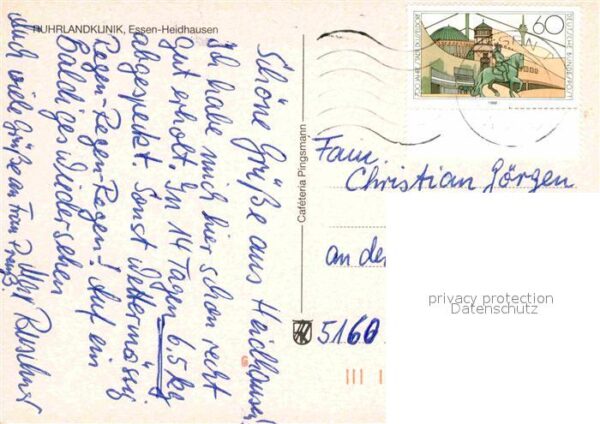 RUHRLANDKLINIK, Essen-Heidhausen
Schöne Grüße aus Heidhausen!
Ich habe mich hier schon recht
gut erholt. In 14 Tagen 6,5 kg
abgespeckt. Sonst wettermäsig
Regen-Regen-Regen! Auf ein
Baldiges Wiedersehen
Auch viele Grüße an Frau
Caféteria Pingsmann
60
DEUTSCHE BUNDESPOST
700 JAHRE STADT DÜSSELDORF
1988
Fam.
Christian Görzen
an der
5160
privacy protection
Datenschutz